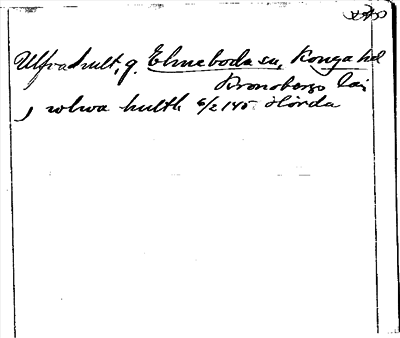 Ulfvahult, g. Elmeboda sn, Konga hd
Kronobergs län
j wlwa hulth 6/2 145 Hörda